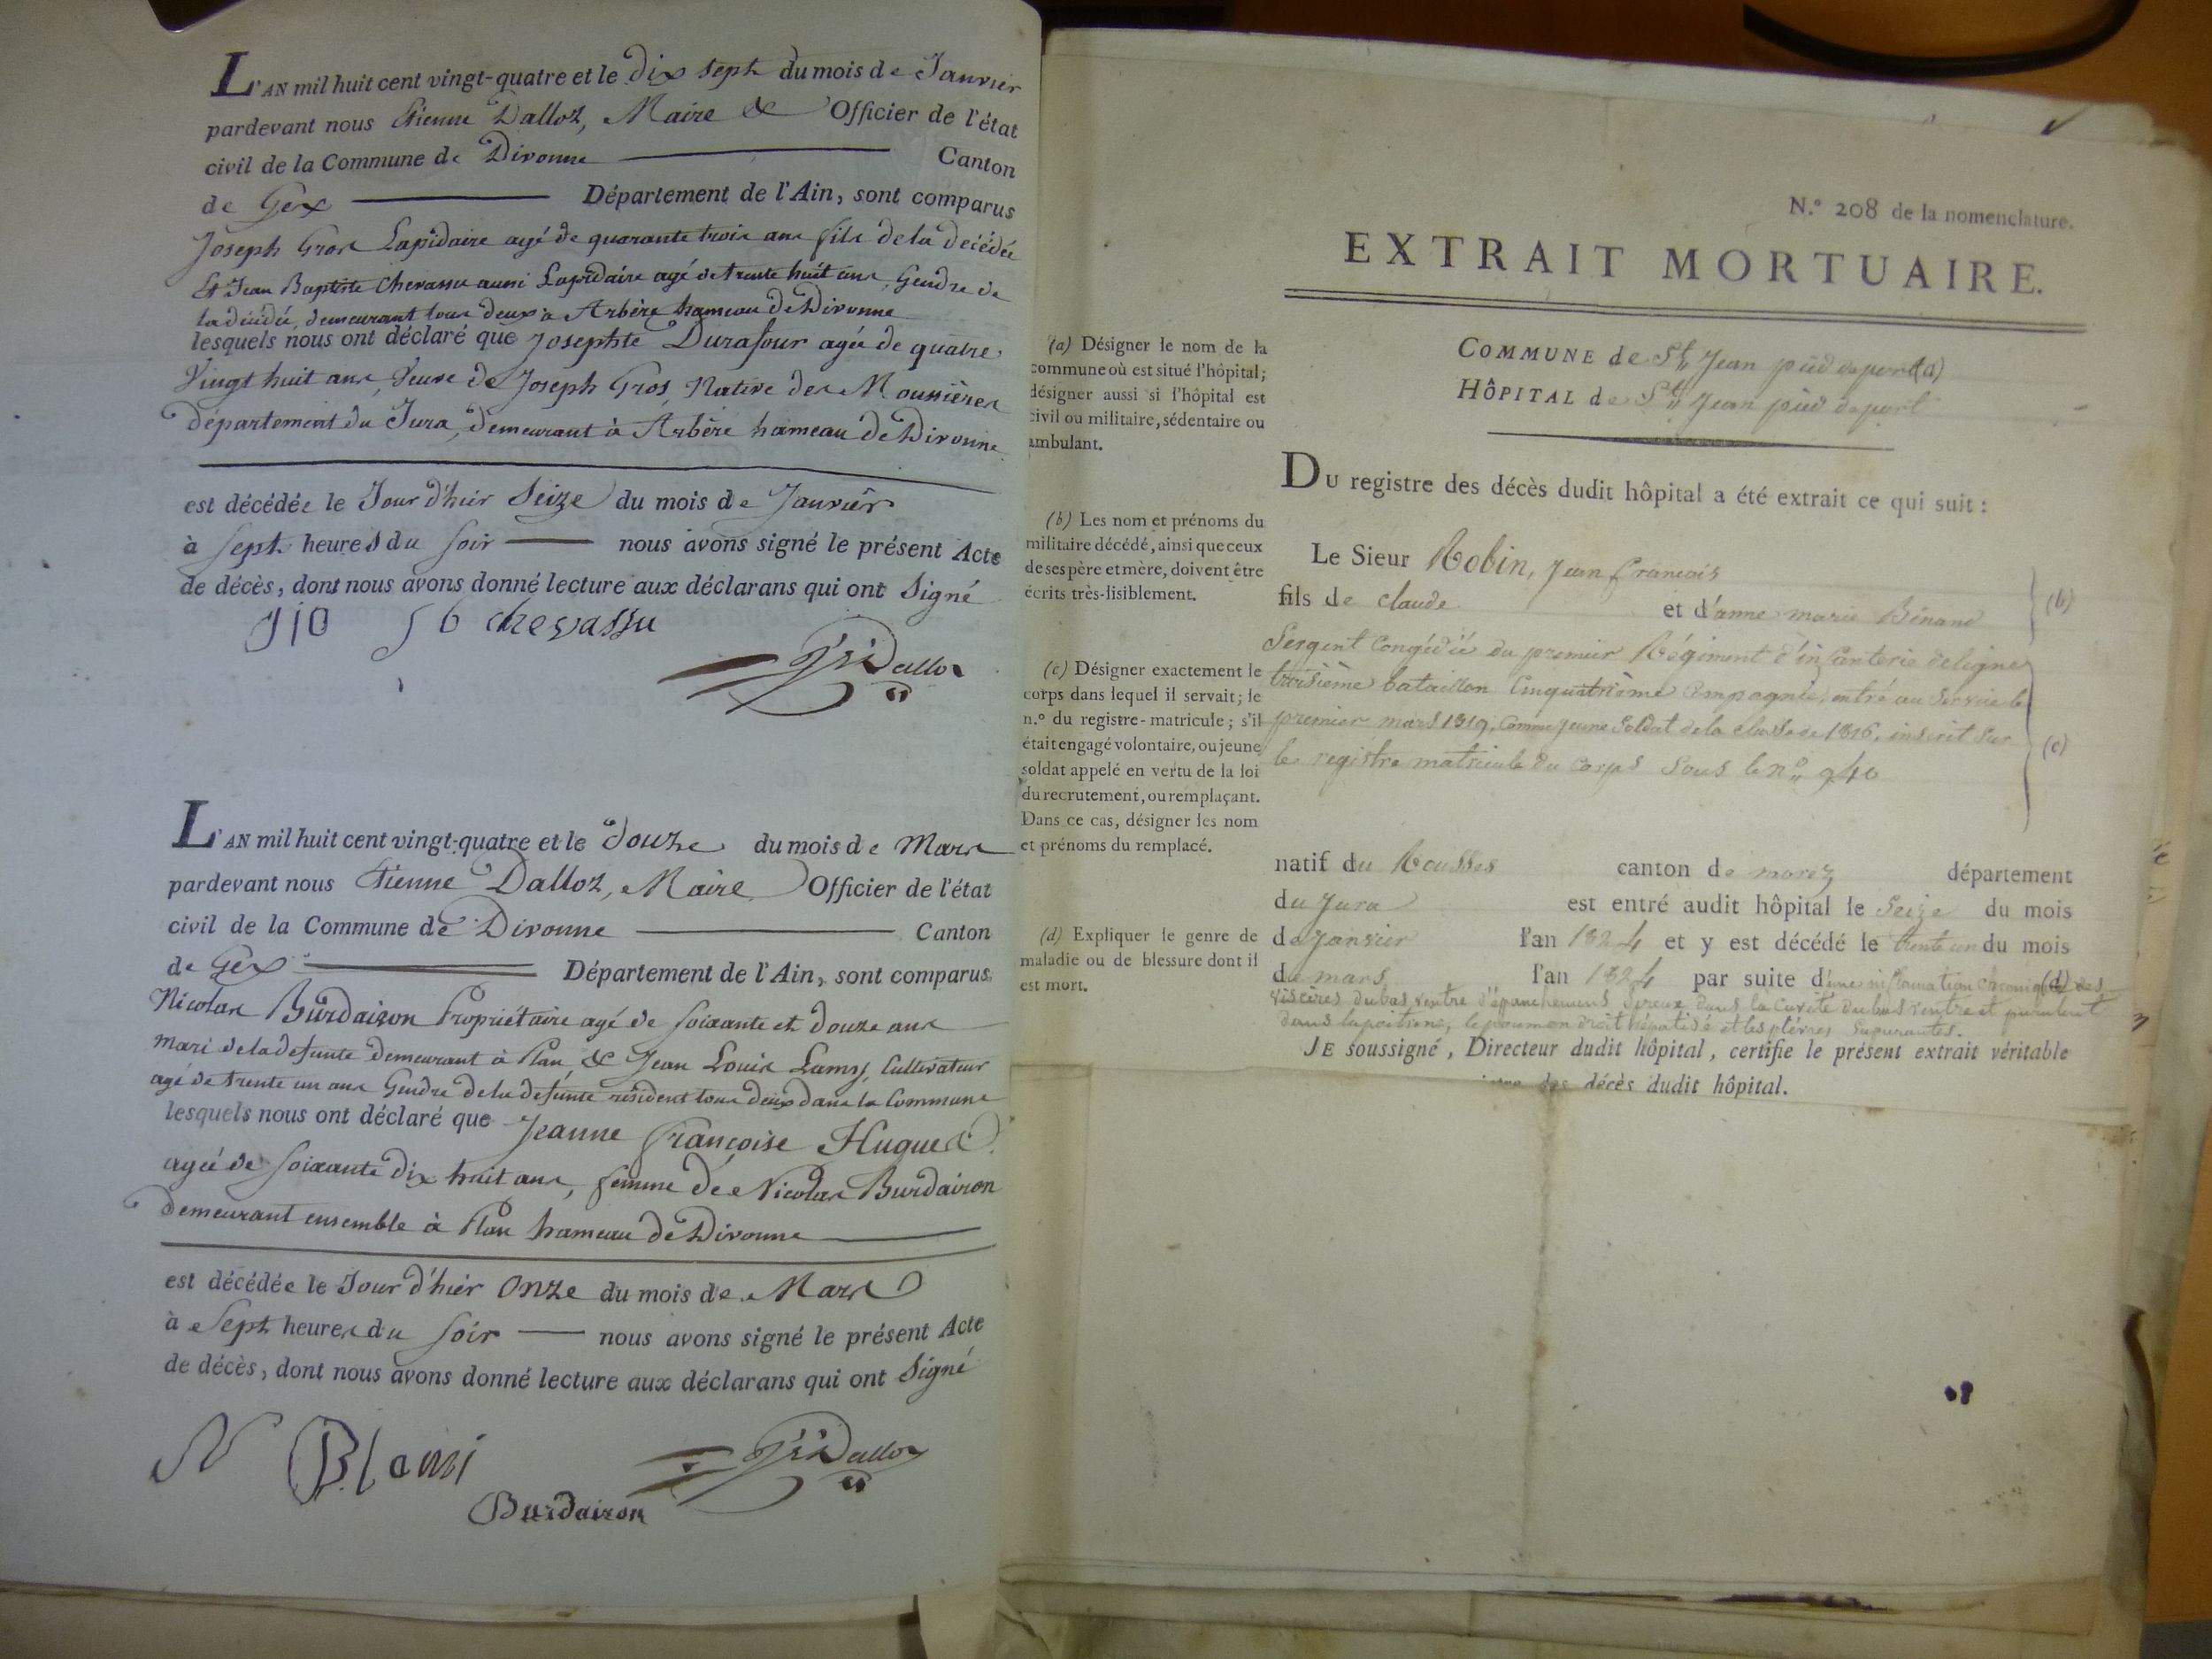 L'AN mil huit cent vingt-quatre et le dix sept du mois de Janvier
pardevant nous Etienne Dalloz, Maire & Officier de l'état
civil de la Commune de Divonne Canton
de Gex Département de l'Ain, sont comparus
Joseph Gros Lapidaire agé de quarante trois ans fils de la décédée
Et Jean Baptiste Chevassu aussi Lapidaire agé de trente huit ans, Gendre de
la décédée, demeurant tous deux à Arbère hameau de Divonne
lesquels nous ont déclaré que Josephte Durafour agée de quatre
Vingt huit ans, Veuve de Joseph Gros, Native des Moussières
département du Jura, demeurant à Arbère hameau de Divonne
est décédée le Jour d'hier Seize du mois de Janvier
à Sept heures du Soir nous avons signé le présent Acte
de décès, dont nous avons donné lecture aux déclarans qui ont Signé
chevassu
Dalloz
L'AN mil huit cent vingt-quatre et le douze du mois de Mars
pardevant nous Etienne Dalloz, Maire Officier de l'état
civil de la Commune de Divonne Canton
de Gex Département de l'Ain, sont comparus
Nicolas Burdairon Propriétaire agé de soixante et douze ans
mari de la defunte demeurant à Plan, & Jean Louis Lamy, Cultivateur
agé de trente un ans Gendre de la defunte résident tous deux dans la Commune
lesquels nous ont déclaré que Jeanne françoise Hugues
agée de soixante dix huit ans, femme de Nicolas Burdairon
demeurant ensemble à Plan hameau de Divonne
est décédée le Jour d'hier Onze du mois de Mars
à Sept heures du Soir nous avons signé le présent Acte
de décès, dont nous avons donné lecture aux déclarans qui ont Signé
N
Burdairon
Dalloz
N.º 208 de la nomenclature.
EXTRAIT MORTUAIRE.
COMMUNE de St Jean pied de port (a)
HÔPITAL de St Jean pied de port
(a) Désigner le nom de la
commune où est situé l'hôpital;
désigner aussi si l'hôpital est
civil ou militaire, sédentaire ou
ambulant.
DU registre des décès dudit hôpital a été extrait ce qui suit :
(b) Les nom et prénoms du
militaire décédé, ainsi que ceux
de ses père et mère, doivent être
écrits très-lisiblement.
Le Sieur Robin, Jean francois
fils de claude et d'anne marie Bénand (b)
(c) Désigner exactement le
corps dans lequel il servait; le
n.º du registre-matricule; s'il
était engagé volontaire, ou jeune
soldat appelé en vertu de la loi
du recrutement, ou remplaçant.
Dans ce cas, désigner les nom
et prénoms du remplacé.
Sergent Congédié du premier Régiment d'infanterie de ligne
troisième bataillon Compagnie, entré au Service le
premier mars 1819, Comme jeune Soldat de la classe de 1816, inscrit sur
le registre matricule du corps sous le nº 940 (c)
natif du Rousses canton de morez département
du Jura est entré audit hôpital le Seize du mois
de Janvier l'an 1824 et y est décédé le trente un du mois
de mars l'an 1824 par suite d'une inflamation chronique (d) des
visceres du bas ventre d'épanchemens sereux dans la Cavité du bas ventre et purulent
dans la poitrine, le poumon droit hépatisé et les plévres supurantes.
(d) Expliquer le genre de
maladie ou de blessure dont il
est mort.
JE soussigné, Directeur dudit hôpital, certifie le présent extrait véritable
des décès dudit hôpital.